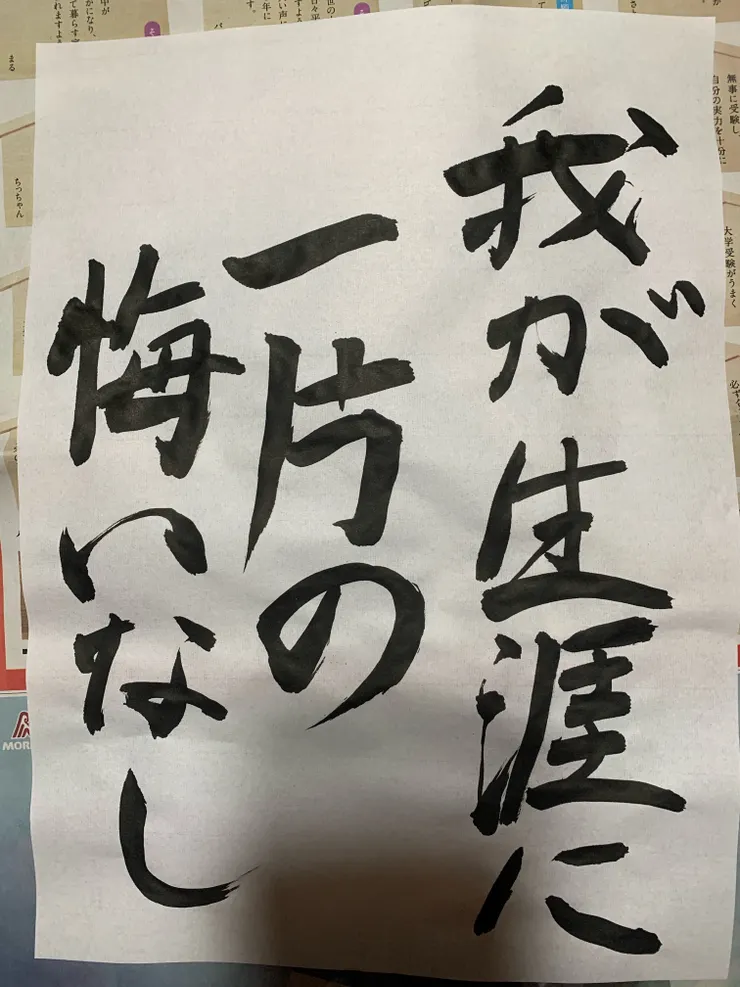 我が生涯に
一片の
悔いなし
無事に受験し、
自分の実力を十分に
大学受験がうまく
ちっちゃん
まる
MOR